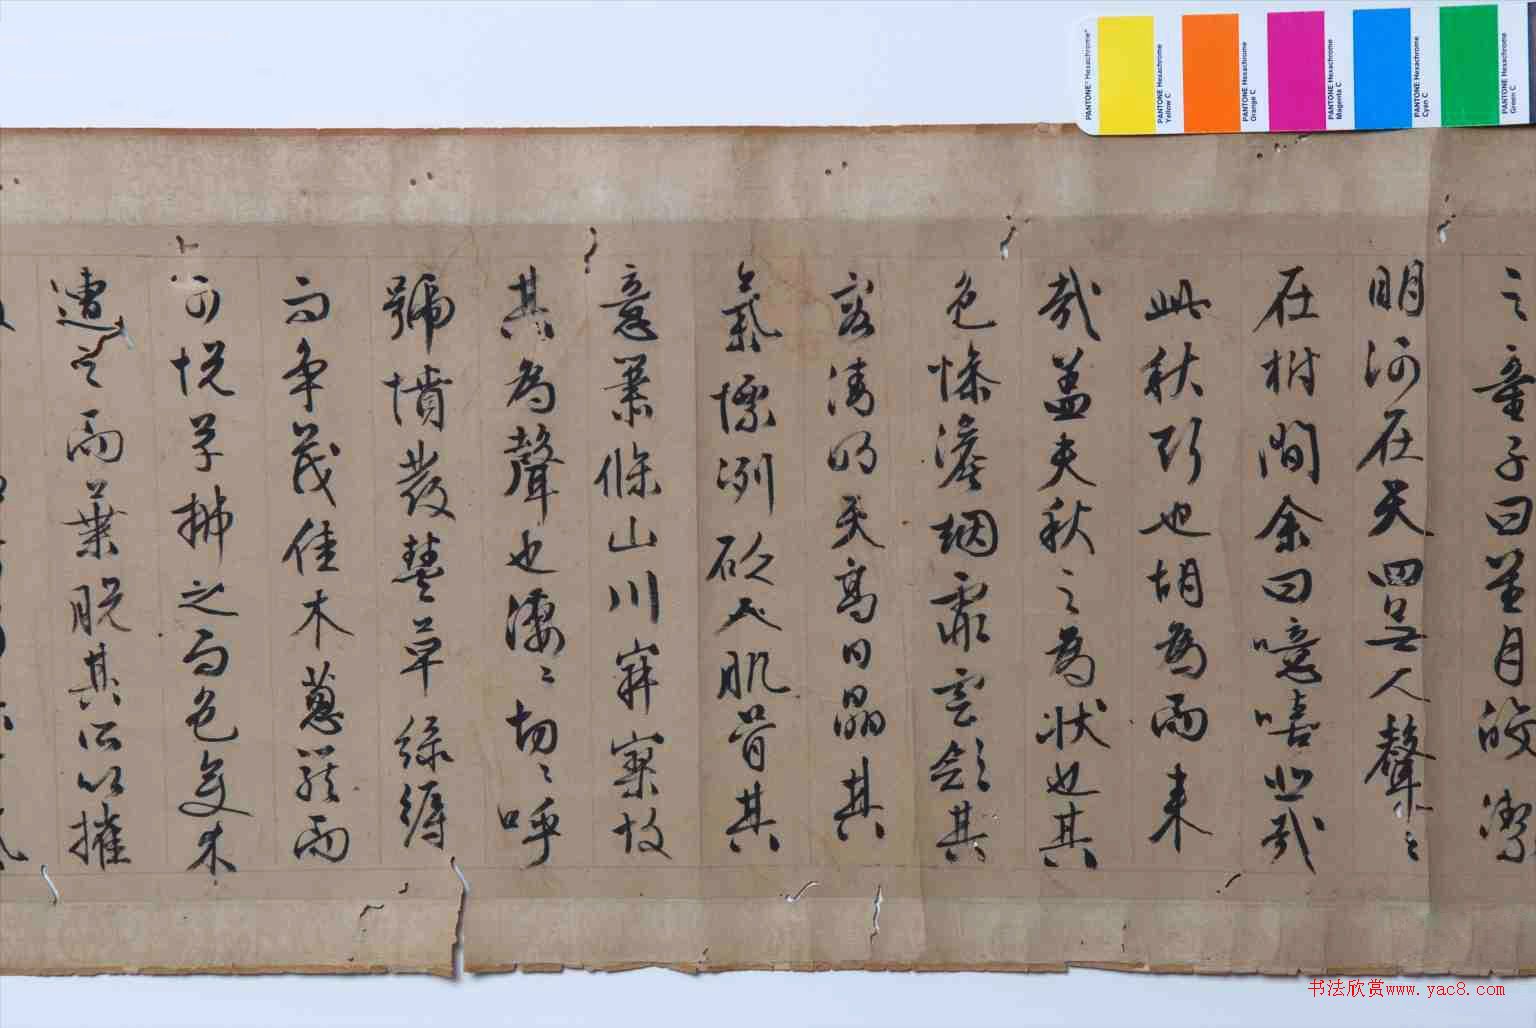 之童子曰星月皎潔
明河在天四無人聲聲
在樹間余曰噫嘻悲哉
此秋聲也胡為而來
哉蓋夫秋之為狀也其
色慘澹烟霏雲斂其
容清明天高日晶其
氣慄冽砭人肌骨其
意蕭條山川寂寥故
其為聲也淒淒切切呼
號憤發豐草綠縟
而爭茂佳木蔥蘢而
可悅草拂之而色變木
遭之而葉脫其所以摧
PANTONE® Hexachrome®
PANTONE Hexachrome Yellow C
PANTONE Hexachrome Orange C
PANTONE Hexachrome Magenta C
PANTONE Hexachrome Cyan C
PANTONE Hexachrome Green C
书法欣赏www.yac8.com